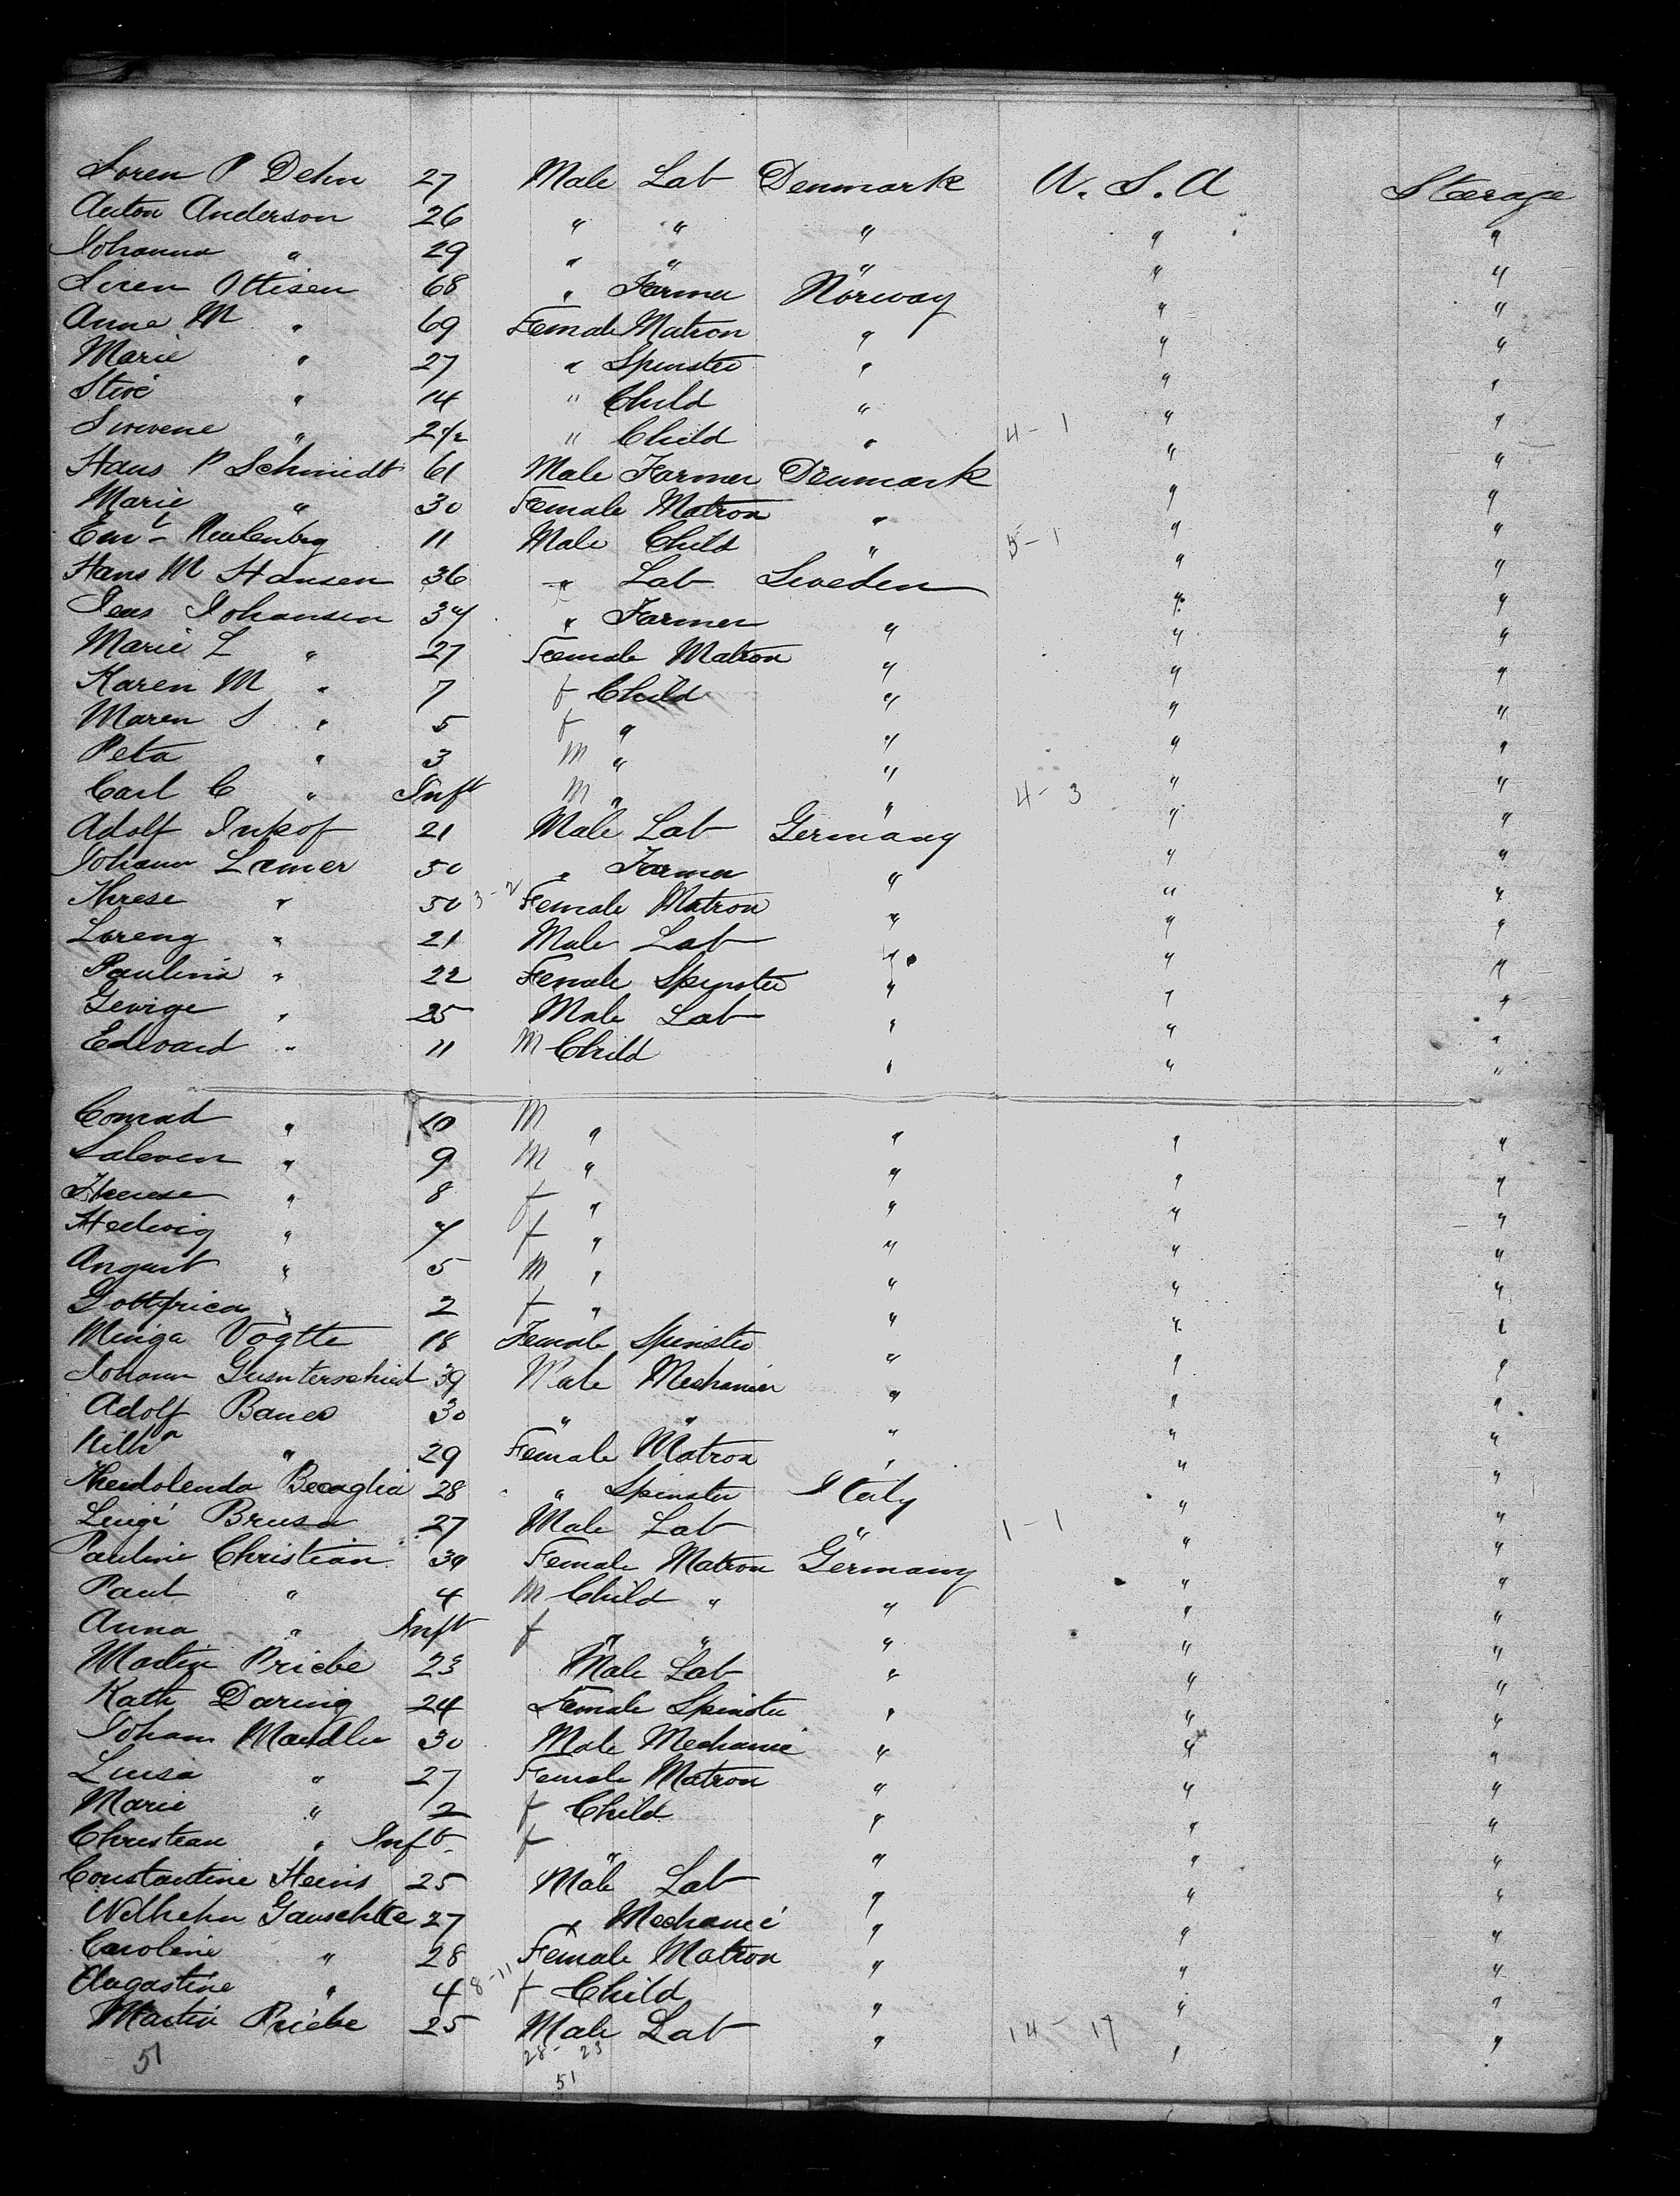 Soren P Dehn 27 Male Lab Denmark U.S.A Steerage
Anton Anderson 26 " " " " "
Johanna " 29 " " " " "
Soren Ottisen 68 " Farmer Norway " "
Anne M " 69 Female Matron " " "
Marie " 27 " Spinster " " "
Stive " 14 " Child " " "
" 2 1/2 " Child " 4-1 " "
Hans P Schmidt 61 Male Farmer Denmark " "
Marie " 30 Female Matron " " "
11 Male Child " 5-1 " "
Hans M Hansen 36 " Lab Sweden " "
Jens Johansen 34 " Farmer " " "
Marie L " 27 Female Matron " " "
Karen M " 7 f Child " " "
Maren S " 5 f " " " "
Peta " 3 M " " " "
Carl C " Inft M " " 4-3 " "
Adolf Inkof 21 Male Lab Germany " "
Johann Lamer 50 " Farmer " " "
Threse " 50 3-2 Female Matron " " "
Loreng " 21 Male Lab " " "
Paulina " 22 Female Spinster " " "
George " 25 Male Lab " " "
Edward " 11 M Child " " "
Conrad " 10 M " " " "
Saleven " 9 M " " " "
Therese " 8 f " " " "
Hedwig " 7 f " " " "
August " 5 M " " " "
Gottfrica " 2 f " " " "
Minga Vogtte 18 Female Spinster " " "
Johann Gusnterschied 39 Male Mechanic " " "
Adolf Baner 30 " " " " "
Wilhn " 29 Female Matron " " "
Theudolenda Becaglia 28 " Spinster Italy " "
Luigi Brusa 27 Male Lab " 1-1 " "
Pauline Christian 39 Female Matron Germany " "
Paul " 4 M Child " " " "
Anna " Inft f " " " " "
Martin Priebe 23 Male Lab " " "
Kath Daring 24 Female Spinster " " "
Johann Mandler 30 Male Mechanic " " "
Luisa " 27 Female Matron " " "
Marie " 2 f Child " " "
Christian " Inft f " " " "
Constantine Heins 25 Male Lab " " "
Wilhelm Gauschke 27 " Mechanic " " "
Caroline " 28 Female Matron " " "
Augastine " 4 8-11 f Child " " "
Martin Priebe 25 Male Lab " 14-17 " "
51 28-23
51